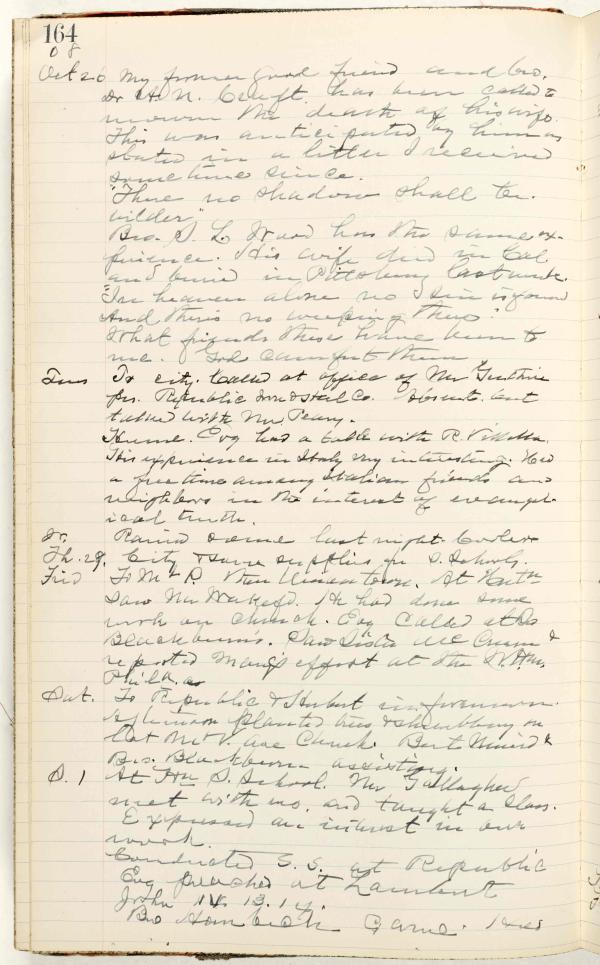 164
08
Oct 26 My former good friend and bro.
Dr A. N. has been called to
mourn the death of his wife.
This was anticipated by him as
stated in a letter I received
sometime since.
"There no shadow shall be-
wilder"
Bro. S. L. Ward has the same ex-
perience. His wife died in Cal
and buried in Pittsburg last week.
"In heaven alone no sin is found
And there's no weeping there."
What friends these have been to
me. God comfort them
Tues To city. Called at office of Mr Guthrie
Pres. Republic Iron & Steel Co. Absent. but
talked with Mr. Peary.
Home. Evg had a talk with R.
His experience in Italy very interesting. Had
a free time among Italian friends and
neighbors in the interest of evangel-
ical truth.
Rained some last night. Cooler
Th. 29. City & some supplies for S. Schools.
Frid To Mt P. then Uniontown. At
saw Mr . He had done some
work on church. Evg called at Dr
Blackburn's. Saw Sister Mc &
reported effort at the
Phila.
Sat. To Republic & in forenoon.
Afternoon planted trees & shrubbery on
lot Mt V. Ave Church. Bert &
Bro. Blackburn assisting.
S. 1 At S. School. Mr. Gallagher
met with us. and taught a class.
Expressed an interest in our
work.
Conducted S. S. at Republic
Evg preached at Lamont
John 14. 13. 14.
Bro came.